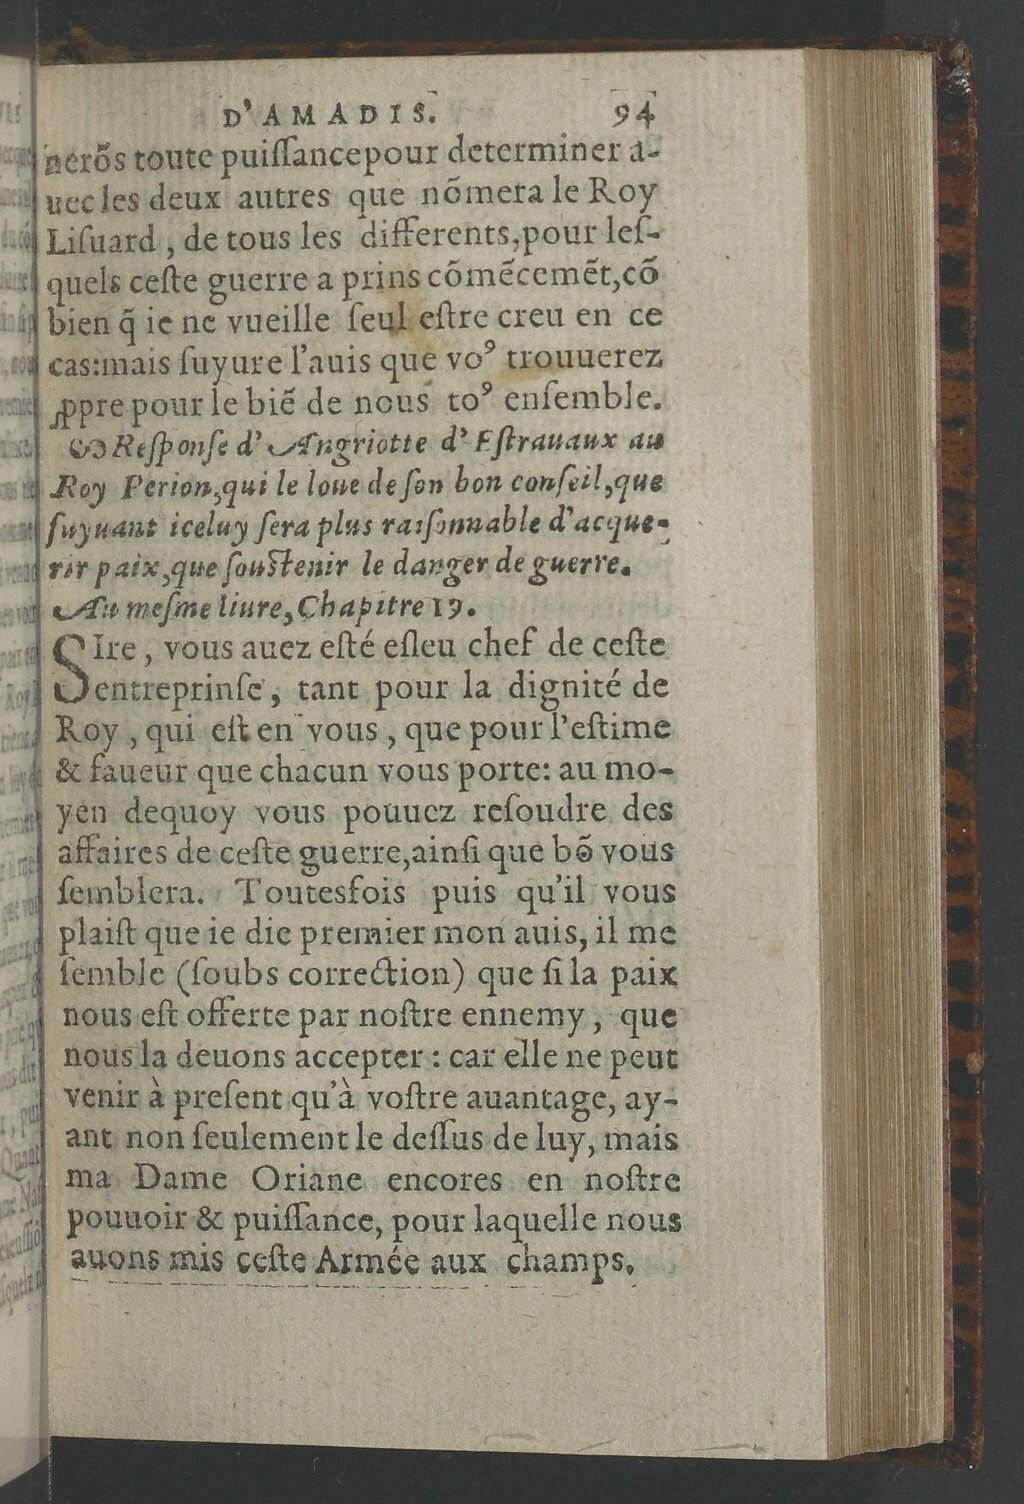 D'AMADIS. 94
nerõs toute puiſſancepour determiner a-
uec les deux autres que nõmera le Roy
Liſuard , de tous les differents,pour leſ-
quels ceſte guerre a prins cõmẽcemẽt,cõ
bien q̃ ie ne vueille ſeul eſtre creu en ce
cas:mais ſuyure l'auis que voꝰ trouuerez
ꝓpre pour le biẽ de nous toꝰ enſemble.
Reſponſe d'Angriotte d'Eſtrauaux au
Roy Perion,qui le loue de ſon bon conſeil,que
ſuyuant iceluy ſera plus raiſonnable d'acque-
rir paix,que ſouſtenir le danger de guerre.
Au meſme liure, Chapitre 19.
SIre , vous auez eſté eſleu chef de ceſte
entreprinſe, tant pour la dignité de
Roy , qui eſt en vous , que pour l'eſtime
& faueur que chacun vous porte: au mo-
yen dequoy vous pouuez reſoudre des
affaires de ceſte guerre,ainſi que bõ vous
ſemblera. Toutesfois puis qu'il vous
plaiſt que ie die premier mon auis, il me
ſemble (ſoubs correction) que ſi la paix
nous eſt offerte par noſtre ennemy , que
nous la deuons accepter : car elle ne peut
venir à preſent qu'à voſtre auantage, ay-
ant non ſeulement le deſſus de luy, mais
ma Dame Oriane encores en noſtre
pouuoir & puiſſance, pour laquelle nous
auons mis ceſte Armée aux champs.